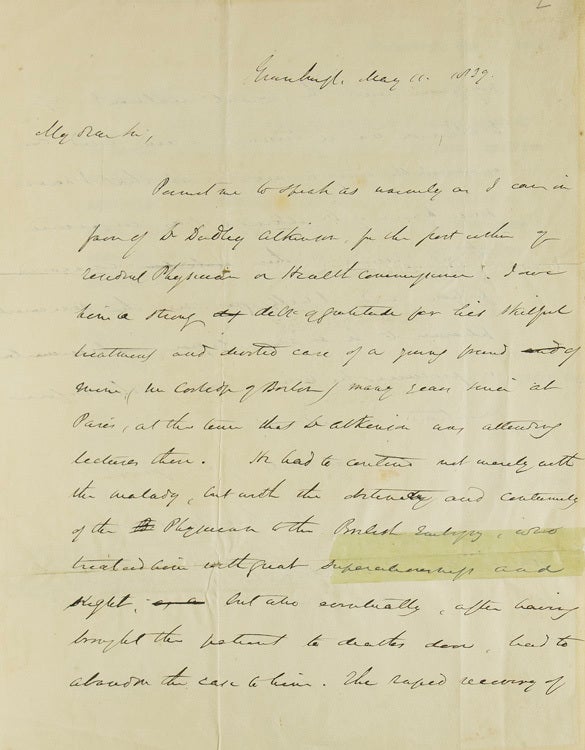 May 11. 1839.
My dear Sir,
Permit me to speak as warmly as I can in
favor of Dr Dudley Atkinson, for the post either of
resident Physician or Health Commissioner. I owe
him a strong debt of gratitude for his skilful
treatment and devoted care of a young friend of
mine, (Mr of Boston) many years since at
Paris, at the time that Dr Atkinson was attending
lectures there. He had to contend not merely with
the malady, but with the and contumely
of the Physician to the British Embassy, who
treated him with great superciliousness and
slight, but also eventually, after having
brought the patient to deaths door, had to
abandon the case to him. The rapid recovery of